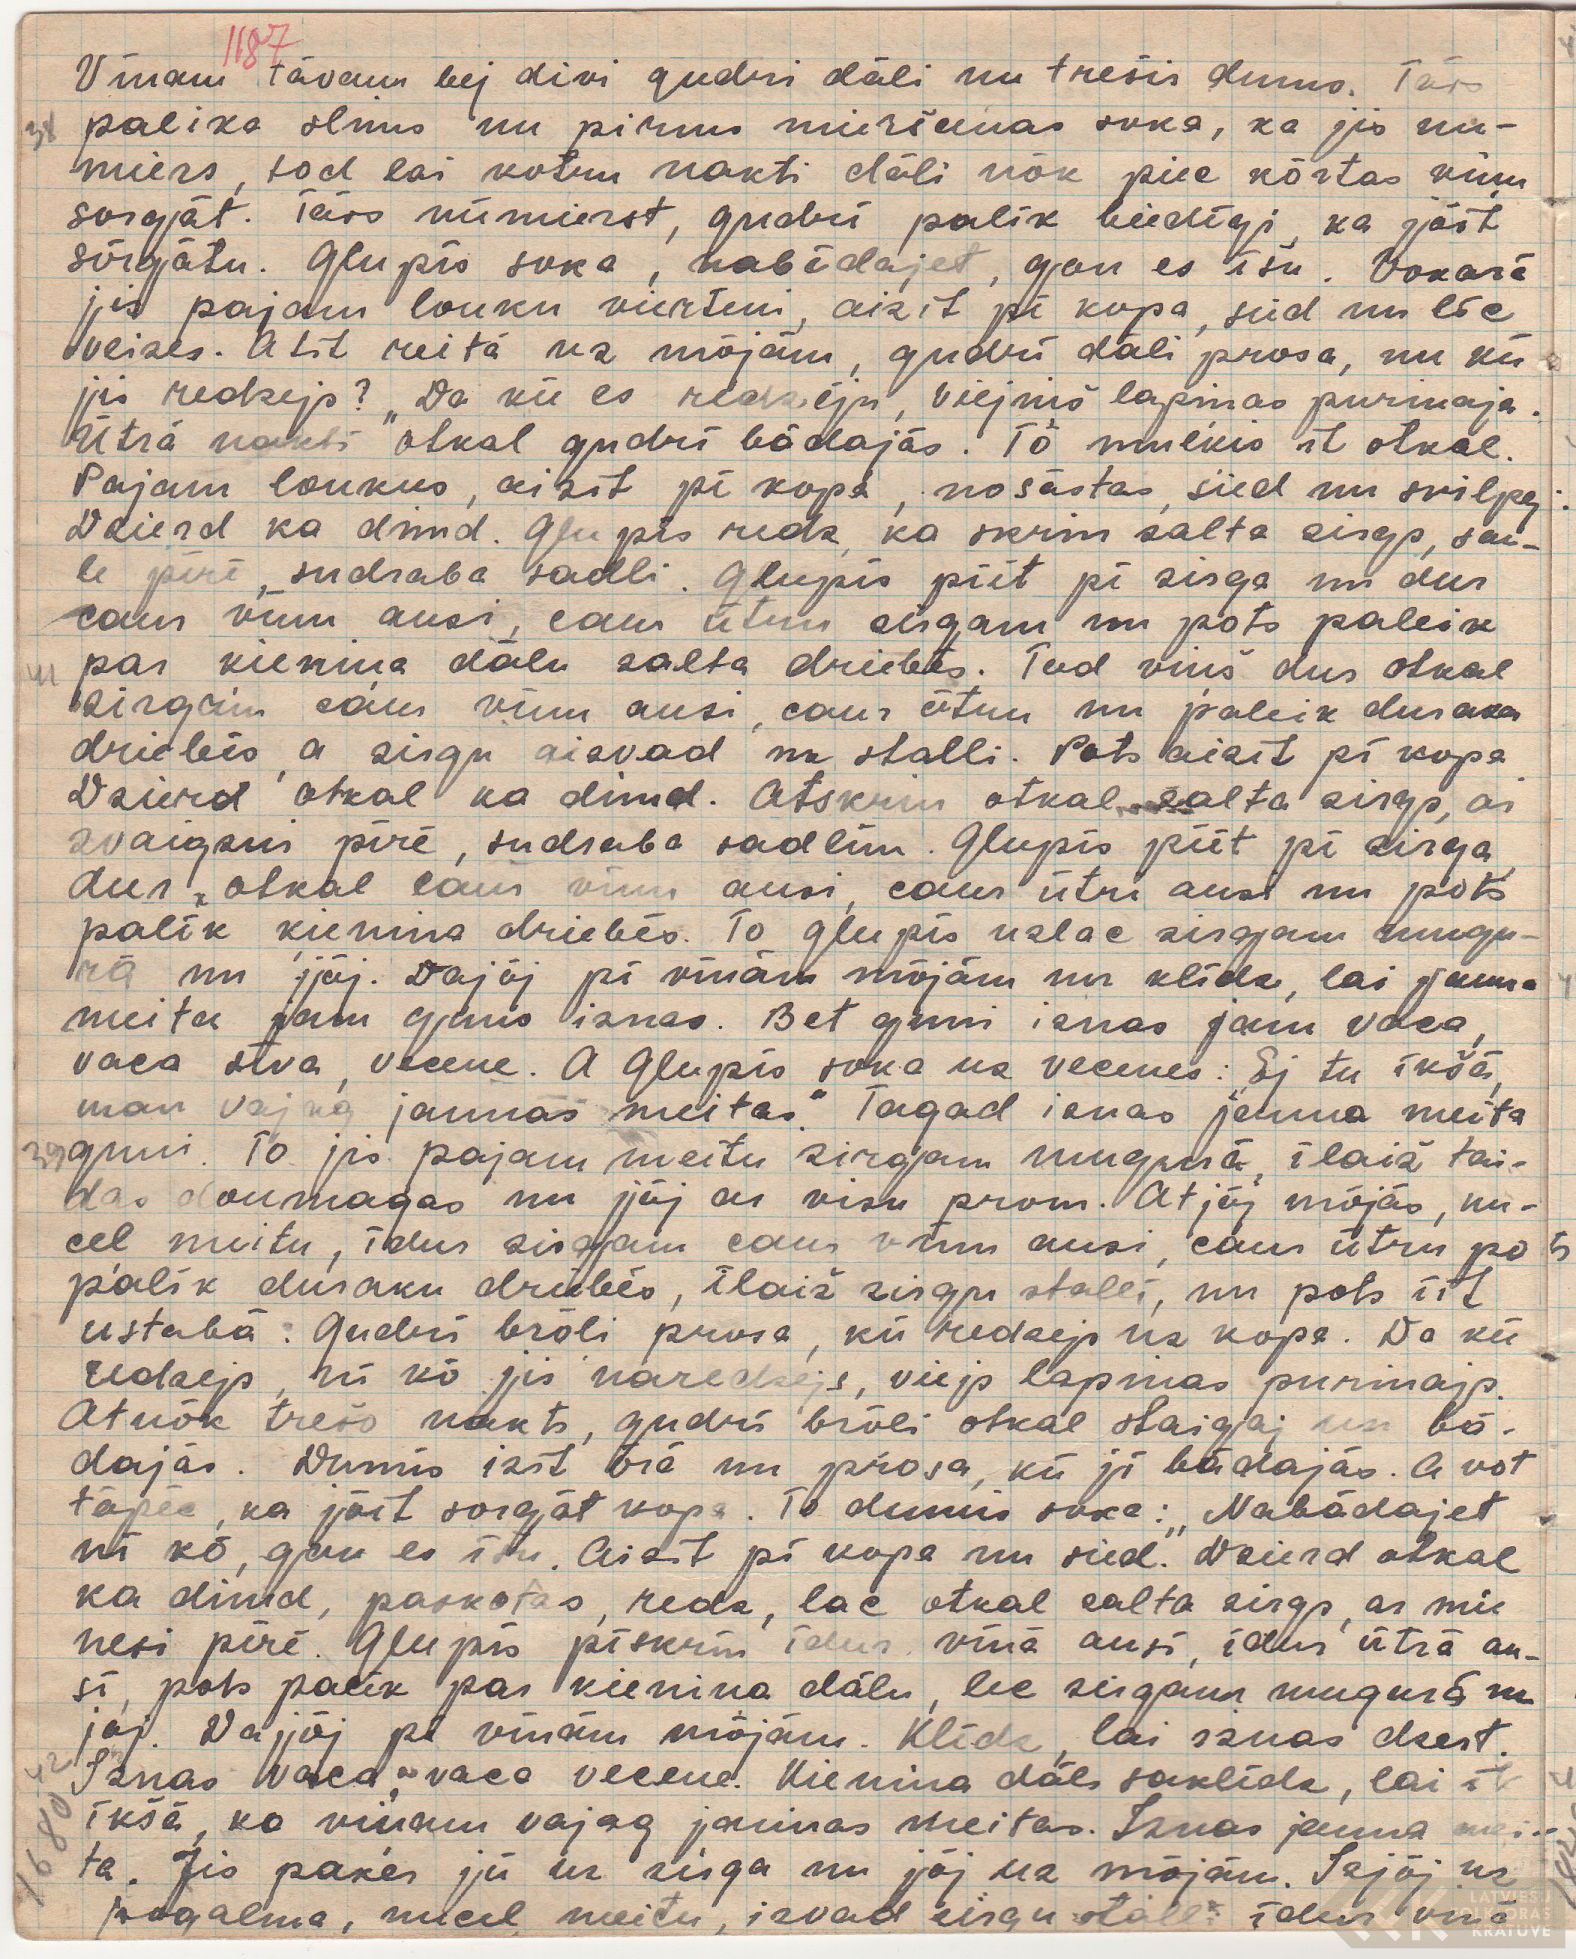 1187
Vīnam tāvam bej divi gudri dāli nu trešis dums. Tāvs
palika slims nu pirms mieršanas soka, ka jis nu-
miers, tod lai kotru nakti dāli nōk piec kōrtas viņu
sorgāt. Tāvs nūmierst, gudrī palīk biedīgi, ka jōit
sōrgātu. Glupīs soka, nabēdajet, gon es īšu. Vokarā
jis pajam louku viersteni, aizīt pī kopa, sēd nu līc
veizes. Atīt reitā uz mōjām, gudrī dāli prosa, nu kū
jis redzejs? „Da kū es redzēju, viejniš lapiņas purinaja.
Ūtrā nakti otkal gudrī bādajās. Tō muļkis īt otkal.
Pajam loukus, aizīt pī kopa, nosāstas, sēd nu svilpej:
Dzierd ka dimd. Glupīs redz, ka skrin zalta zirgs, sau-
le pīrē, sudraba sadli. Glupīs pīīt pī zirga nu dur
caur vīnu ausi, caur ūtru zirgam nu pots paleik
par kieniņa dālu zalta driebēs. Tod viņš dur otkal
zirgam caur vīnu ausi, caur ūtru nu paleik duraka
driebēs, a zirgu aizvad nu stalli. Pots aizīt pī kopa
Dzierd otkal ka dimd. Atskrin otkal zalta zirgs, ar
zvaigzni pīrē, sudraba sadlim. Glupīs pīīt pī zirga,
dur otkal caur vīnu ausi, caur ūtru ausi nu pots
palīk kieniņa driebēs. To glupīs uzlac zirgam mugu-
rā nu jōj. Dajōj pī vīnām mōjām nu klīdz, lai jauna
meita jam guns iznas. Bet guni iznas jam vaca,
vaca sīva, vecene. A Glupīs soka uz vecenes: „Ej tu īkšā,
man vajag jaunas meitas." Tagad iznas jauna meita
guni. To jis pajam meitu zirgam mugurā, īlaiž tai-
das doumagas nu jōj ar visu prom. Atjōj mōjās, nu-
cel meitu, īdur zirgam caur vīnu ausi, caur ūtru pots
palīk duraku driebēs, īlaiž zirgu stallī, nu pots īīt
ustabā. Gudrī brōli prosa, kū redzejs uz kopa. Da kū
redzejs, nī kō jis naredzejs, viejs lapiņas purinajs.
Atnōk trešo nakts, gudrī brōli otkal staigaj un bā-
dajās. Dumis izīt ōrā nu prosa, kū jī bādajās. A vot
tōpēc, ka jōit sorgāt kopa. To dumis soka: „Nabādajet
nī kō, gon es īšu. Aizīt pī kopa nu sied. Dzierd otkal
ka dimd, paskotās, redz, lac otkal zalta zirgs, ar mie
nesi pīrē. Glupīs pīskrin īdur vīnā ausi, īdur ūtrā au-
sī, pots palīk par kieniņa dālu, lec zirgam mugurā nu
jōj. Dajjōj pī vīnām mōjām. Klīdz, lai iznas dzert.
Iznas vaca, vaca vecene. Kieniņa dāls saklīdz, lai īt
īkšā, ka viņam vajag jaunas meitas. Iznas jauna mei-
ta. Jis paker jū uz zirga nu jōj uz mōjām. Izjōj uz
pogalma, nucel meitu, izvad zirgu stallī īdur vīnā
38
41
39
42
1680
LATVIEŠU
FOLKLORAS
KRĀTUVE